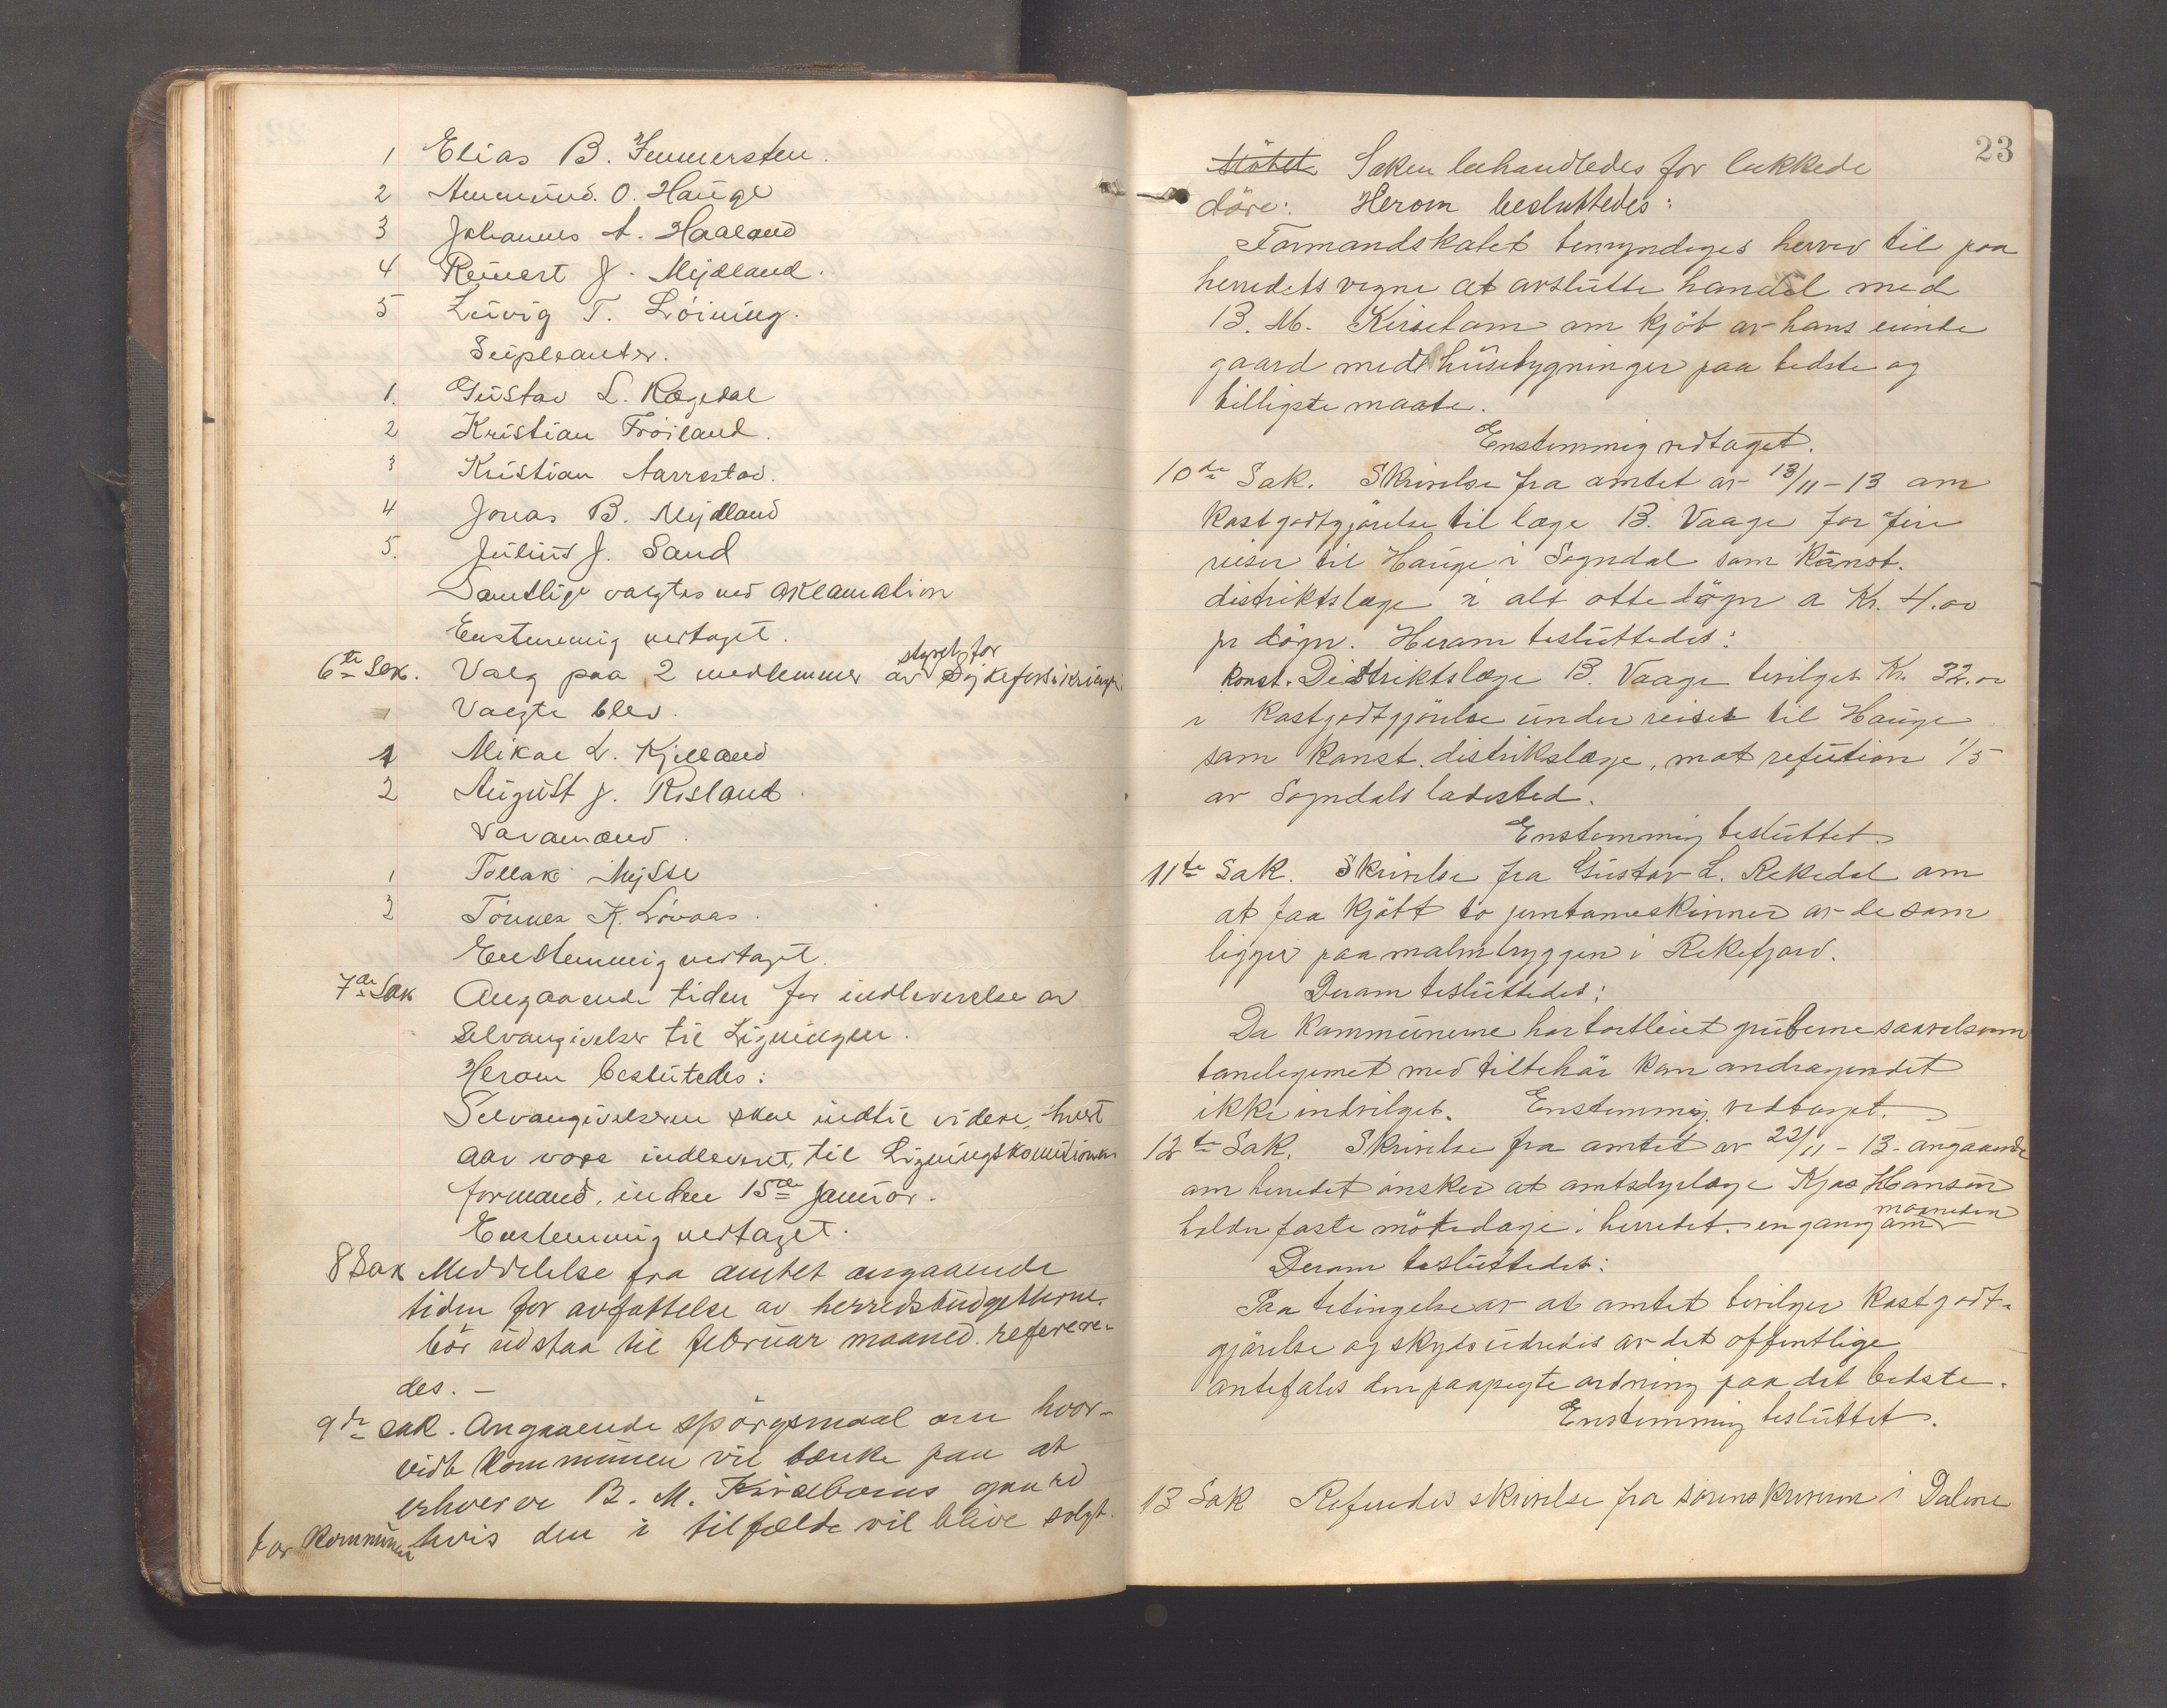 1 Elias B. Immersten.
2 Ammund. O. Hauge
3 Johannes A. Haaland
4 Reinert J. Mydland.
5 Luvig T. Löining.
Supleanter.
1. Gustav L. Regedal
2 Kristian Fröiland.
3 Kristian Aarrestad.
4 Jonas B. Mydland
5. Julius J. Sand
Samtlige valgtes ved aklamation
Enstemmig vertaget.
6te Sak. Valg paa 2 medlemmer av styret for Sykeforsikringen
Valgte blev.
1 Mikal L. Kjelland
2 August J. Risland.
Varamænd.
1 Tollak Mysse
2 Tönnes K. Lövaas.
Enstemmig vertaget.
7de Sak Angaaende tiden for indleverelse av
selvangivelser til Ligningen.
Herom beslutedes:
Selvangivelserne skal indtil videre, hvert
aar være indleveret, til Ligningskomitionens
formand, inden 15de Januar.
Enstemmig vertaget.
8 Sak Meddelelse fra amtet angaaende
tiden for avfattelse av herredsbudgetterne.
bör udstaa til februar maaned. referere-
des. –
9de sak. Angaaende spörgsmaal om hvor-
vidt kommunen vil tænke paa at
erhverve B. M. Kirseboms gaard
for kommunen hvis den i tilfælde vil blive solgt.
23
Mötet Saken behandledes for lukkede
döre: Herom besluttedes:
Formandskabet bemyndiges herved til paa
herredets vegne at avslutte handel med
B. M. Kirsebom om kjöb av hans eiende
gaard med husebygninger paa bedste og
billigste maate.
Enstemmig vedtaget.
10de Sak. Skrivelse fra amtet av 13/11–13 om
kostgodtgjörelse til læge B. Vaage for fire
reiser til Hauge i Sogndal som konst.
distriktslæge i alt otte dögn a Kr. 4.00
pr dögn. Herom besluttedes:
Konst. Distriktslæge B. Vaage bevilges Kr. 32.00
i kostgodtgjörelse under reiser til Hauge
som konst. distrikslæge, mot refution 1/5
av Sogndals ladested.
Enstemmig besluttet.
11te Sak. Skrivelse fra Gustav L. Rekedal om
at faa kjöbt to jernbaneskinner av de som
ligger paa malmbryggen i Rekefjord.
Derom besluttedes:
Da kommunerne har bortleiet gruberne saavelsom
banelegemet med tilbehör kan andragendet
ikke indvilges. Enstemmig vedtaget.
12te Sak. Skrivelse fra amtet av 22/11–13 angaaende
om herredet önsker at amtsdyrlæge Kjos Hansen
holder faste mötedage i herredet engang om maaneden
Derom besluttedes:
Paa betingelse av at amtet bevilger kostgodt-
gjörelse og skyds udredes av det offentlige
antefales den paapegte ordning paa det bedste.
Enstemmig besluttet.
13 Sak Referedes skrivelse fra sorenskriveren i Dalene